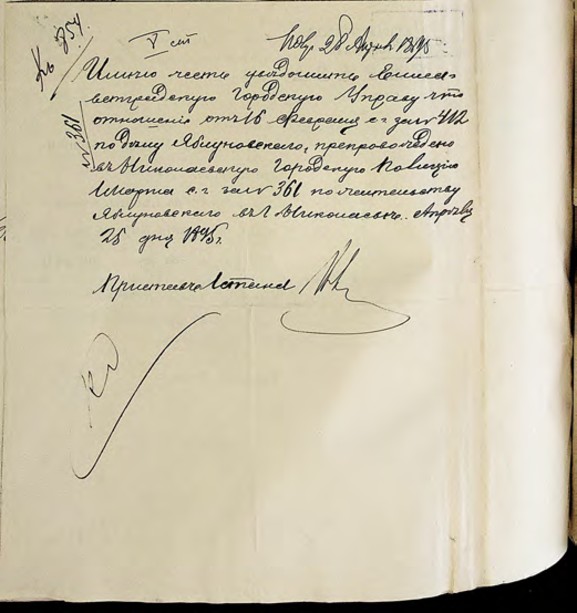 Къ 354
V ст
Пол. 28 Апрѣля 1895
№ 361
Имѣю честь увѣдомить Елиса-
ветградскую Городскую Управу что
отношеніе отъ 16 Февраля с. г. за № 412
по дѣлу Яблуновскаго, препровождено
въ Николаевскую Городскую Полицію
1 Марта с. г. за № 361 по жительству
Яблуновскаго въ г. Николаевѣ. Апрѣля
25 дня 1895 г.
Приставъ